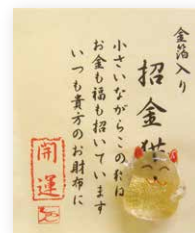 金箔入り
招金猫
小さいながらこのねこ
お金も福も招いています
いつも貴方のお財布に
開運